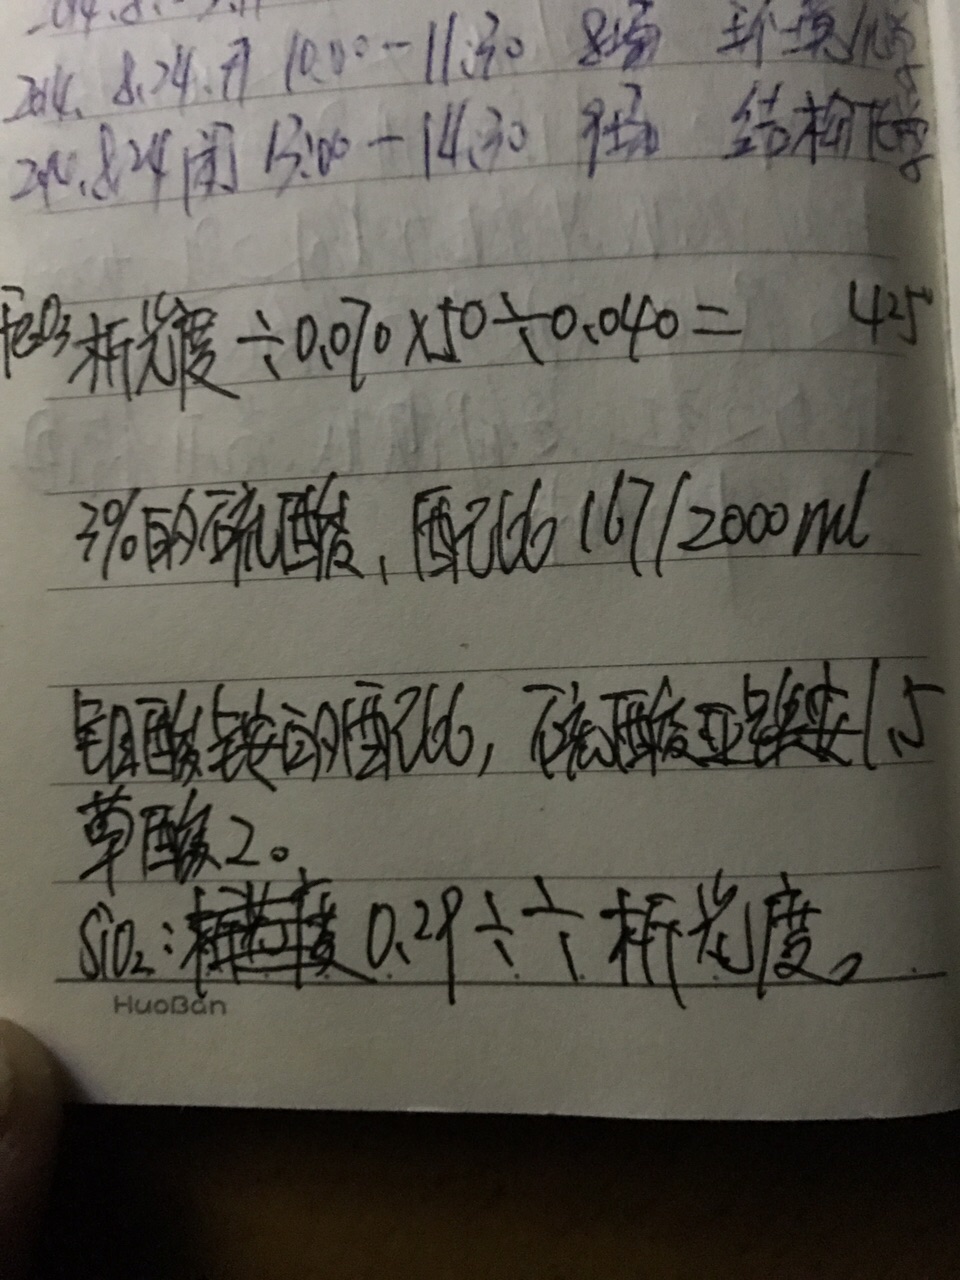 2014.8.24.开 10:00-11:30 8场 环境化学
2014.8.24闭 13:00-14:30 9场 结构化学
Fe2O3 析光度÷0.070×50÷0.040= 425
3%的硫酸、配比 167/2000ml
钼酸铵的配比,硫酸亚铁铵1.5
草酸2。
SiO2: 0.29÷÷析光度。
HuoBan